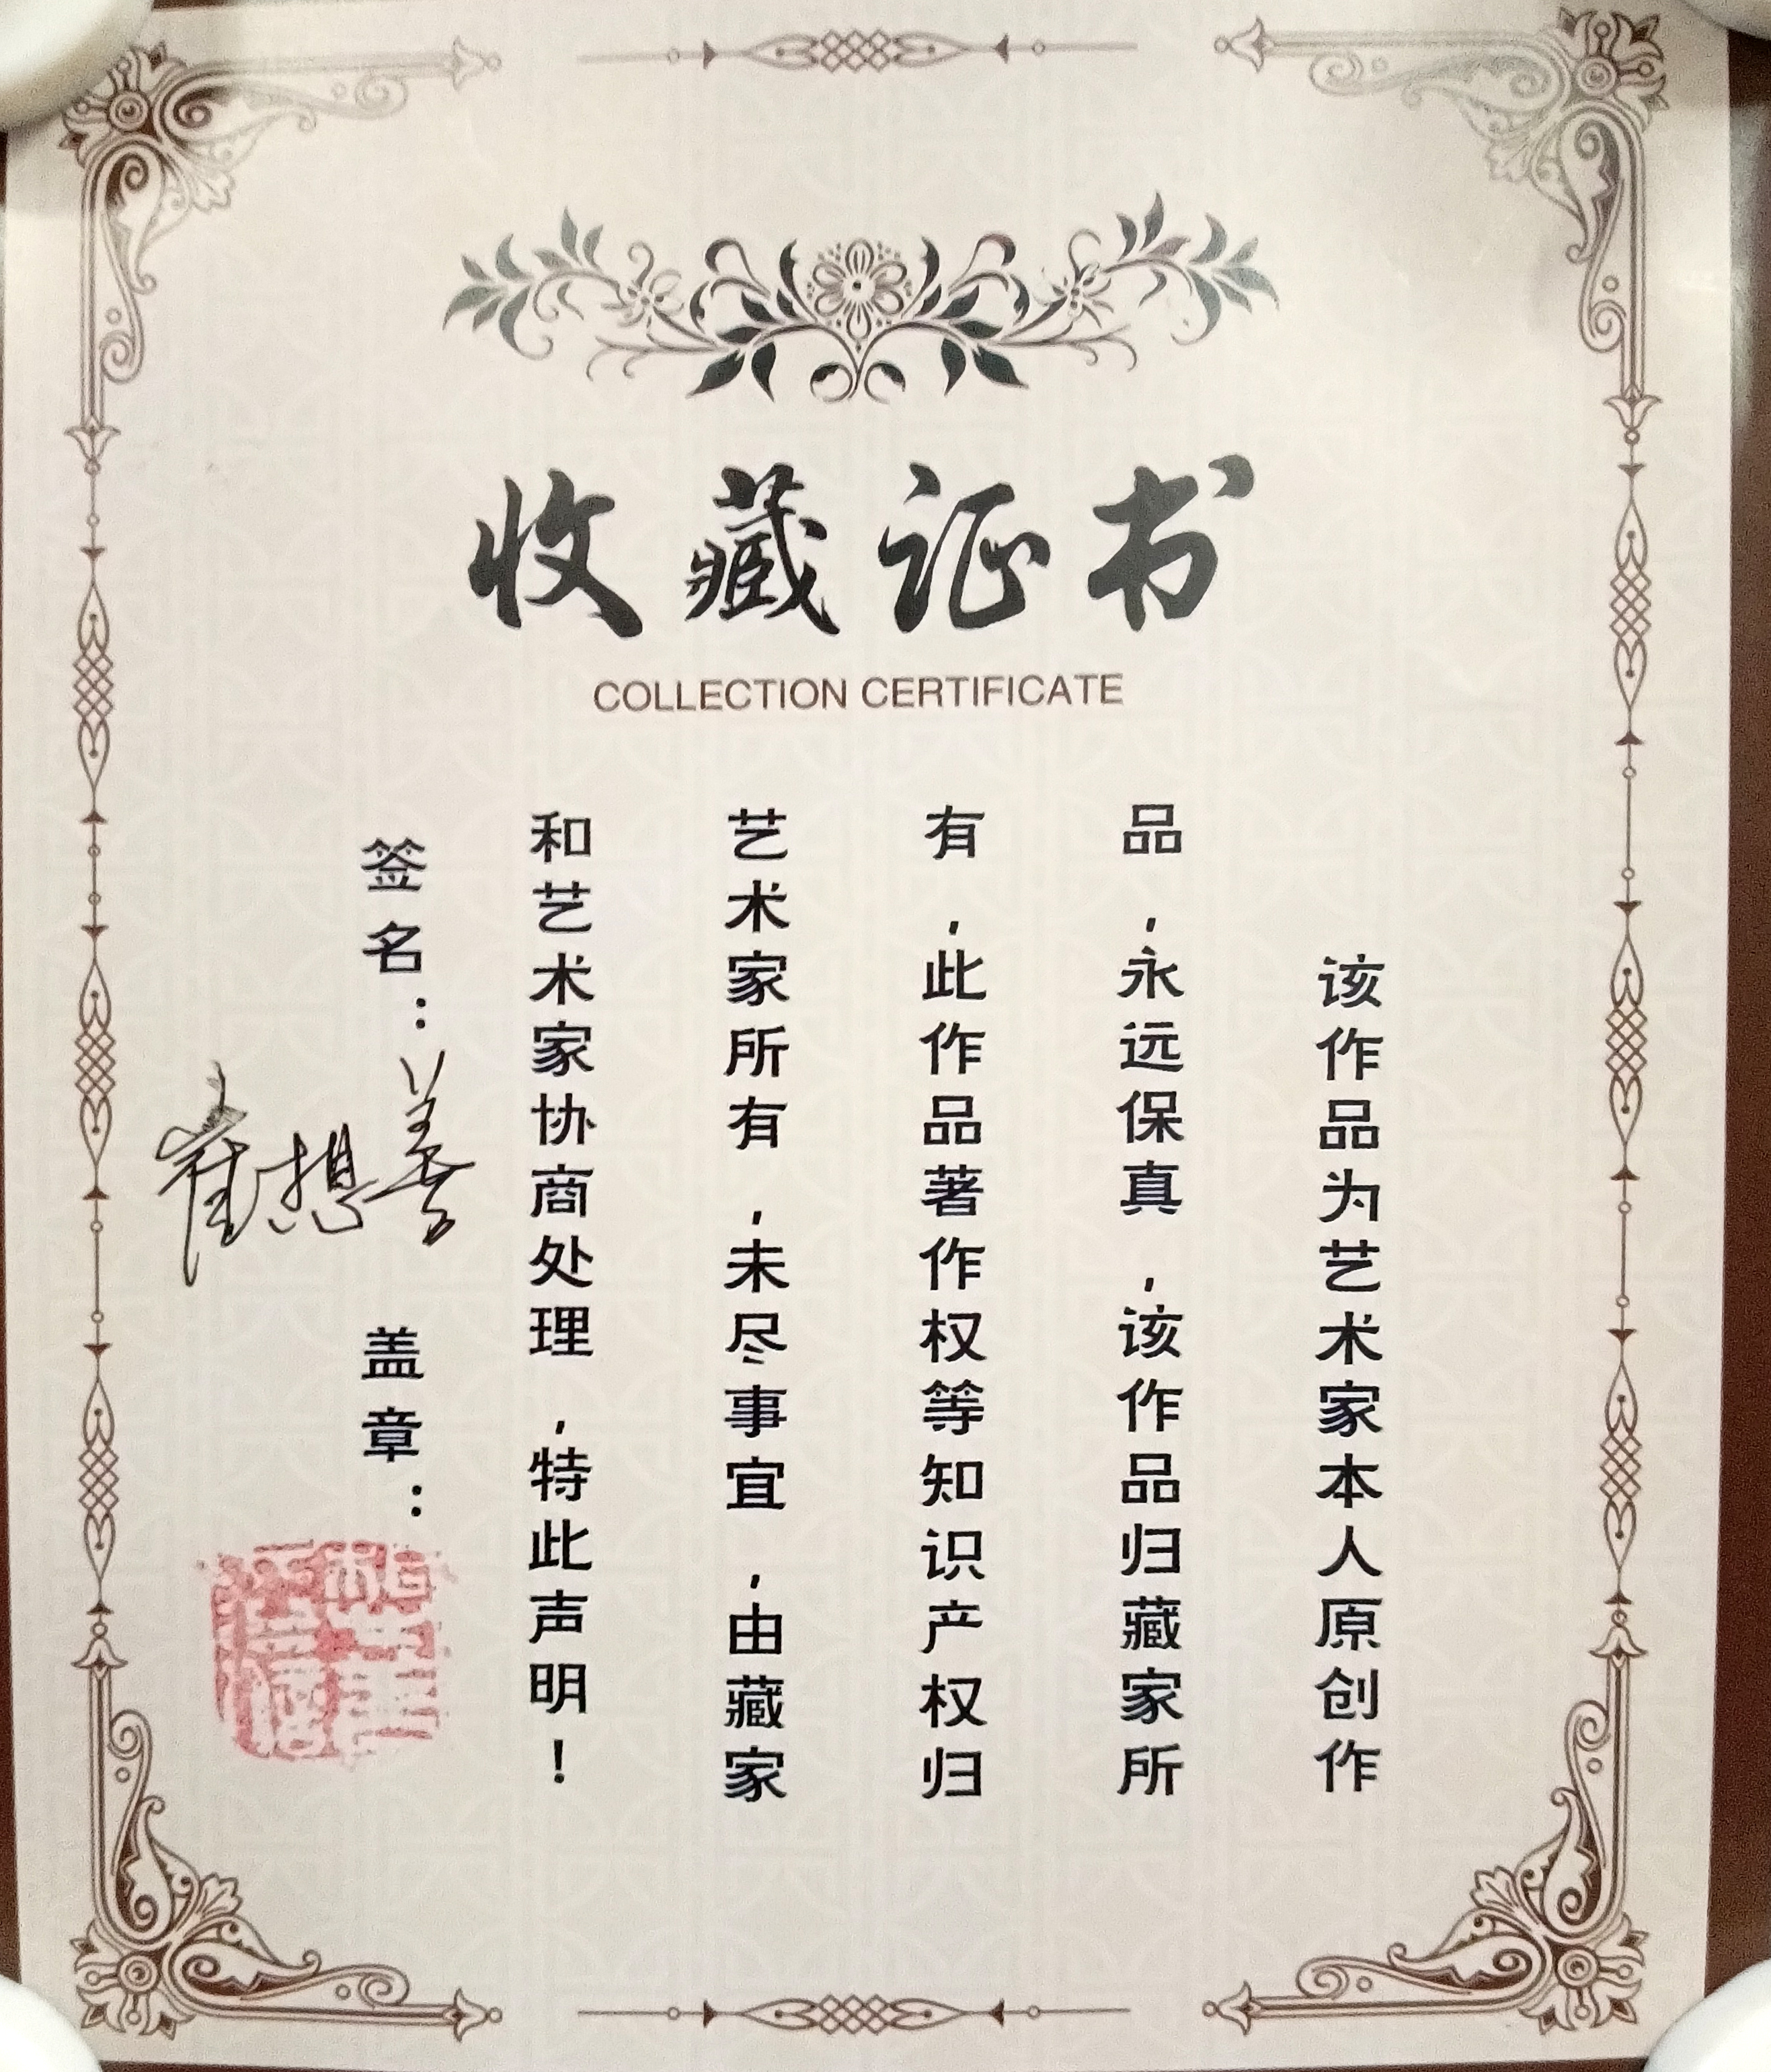 收藏证书
COLLECTION CERTIFICATE
该作品为艺术家本人原创作
品,永远保真,该作品归藏家所
有,此作品著作权等知识产权归
艺术家所有,未尽事宜,由藏家
和艺术家协商处理,特此声明!
签名:崔想善
盖章: